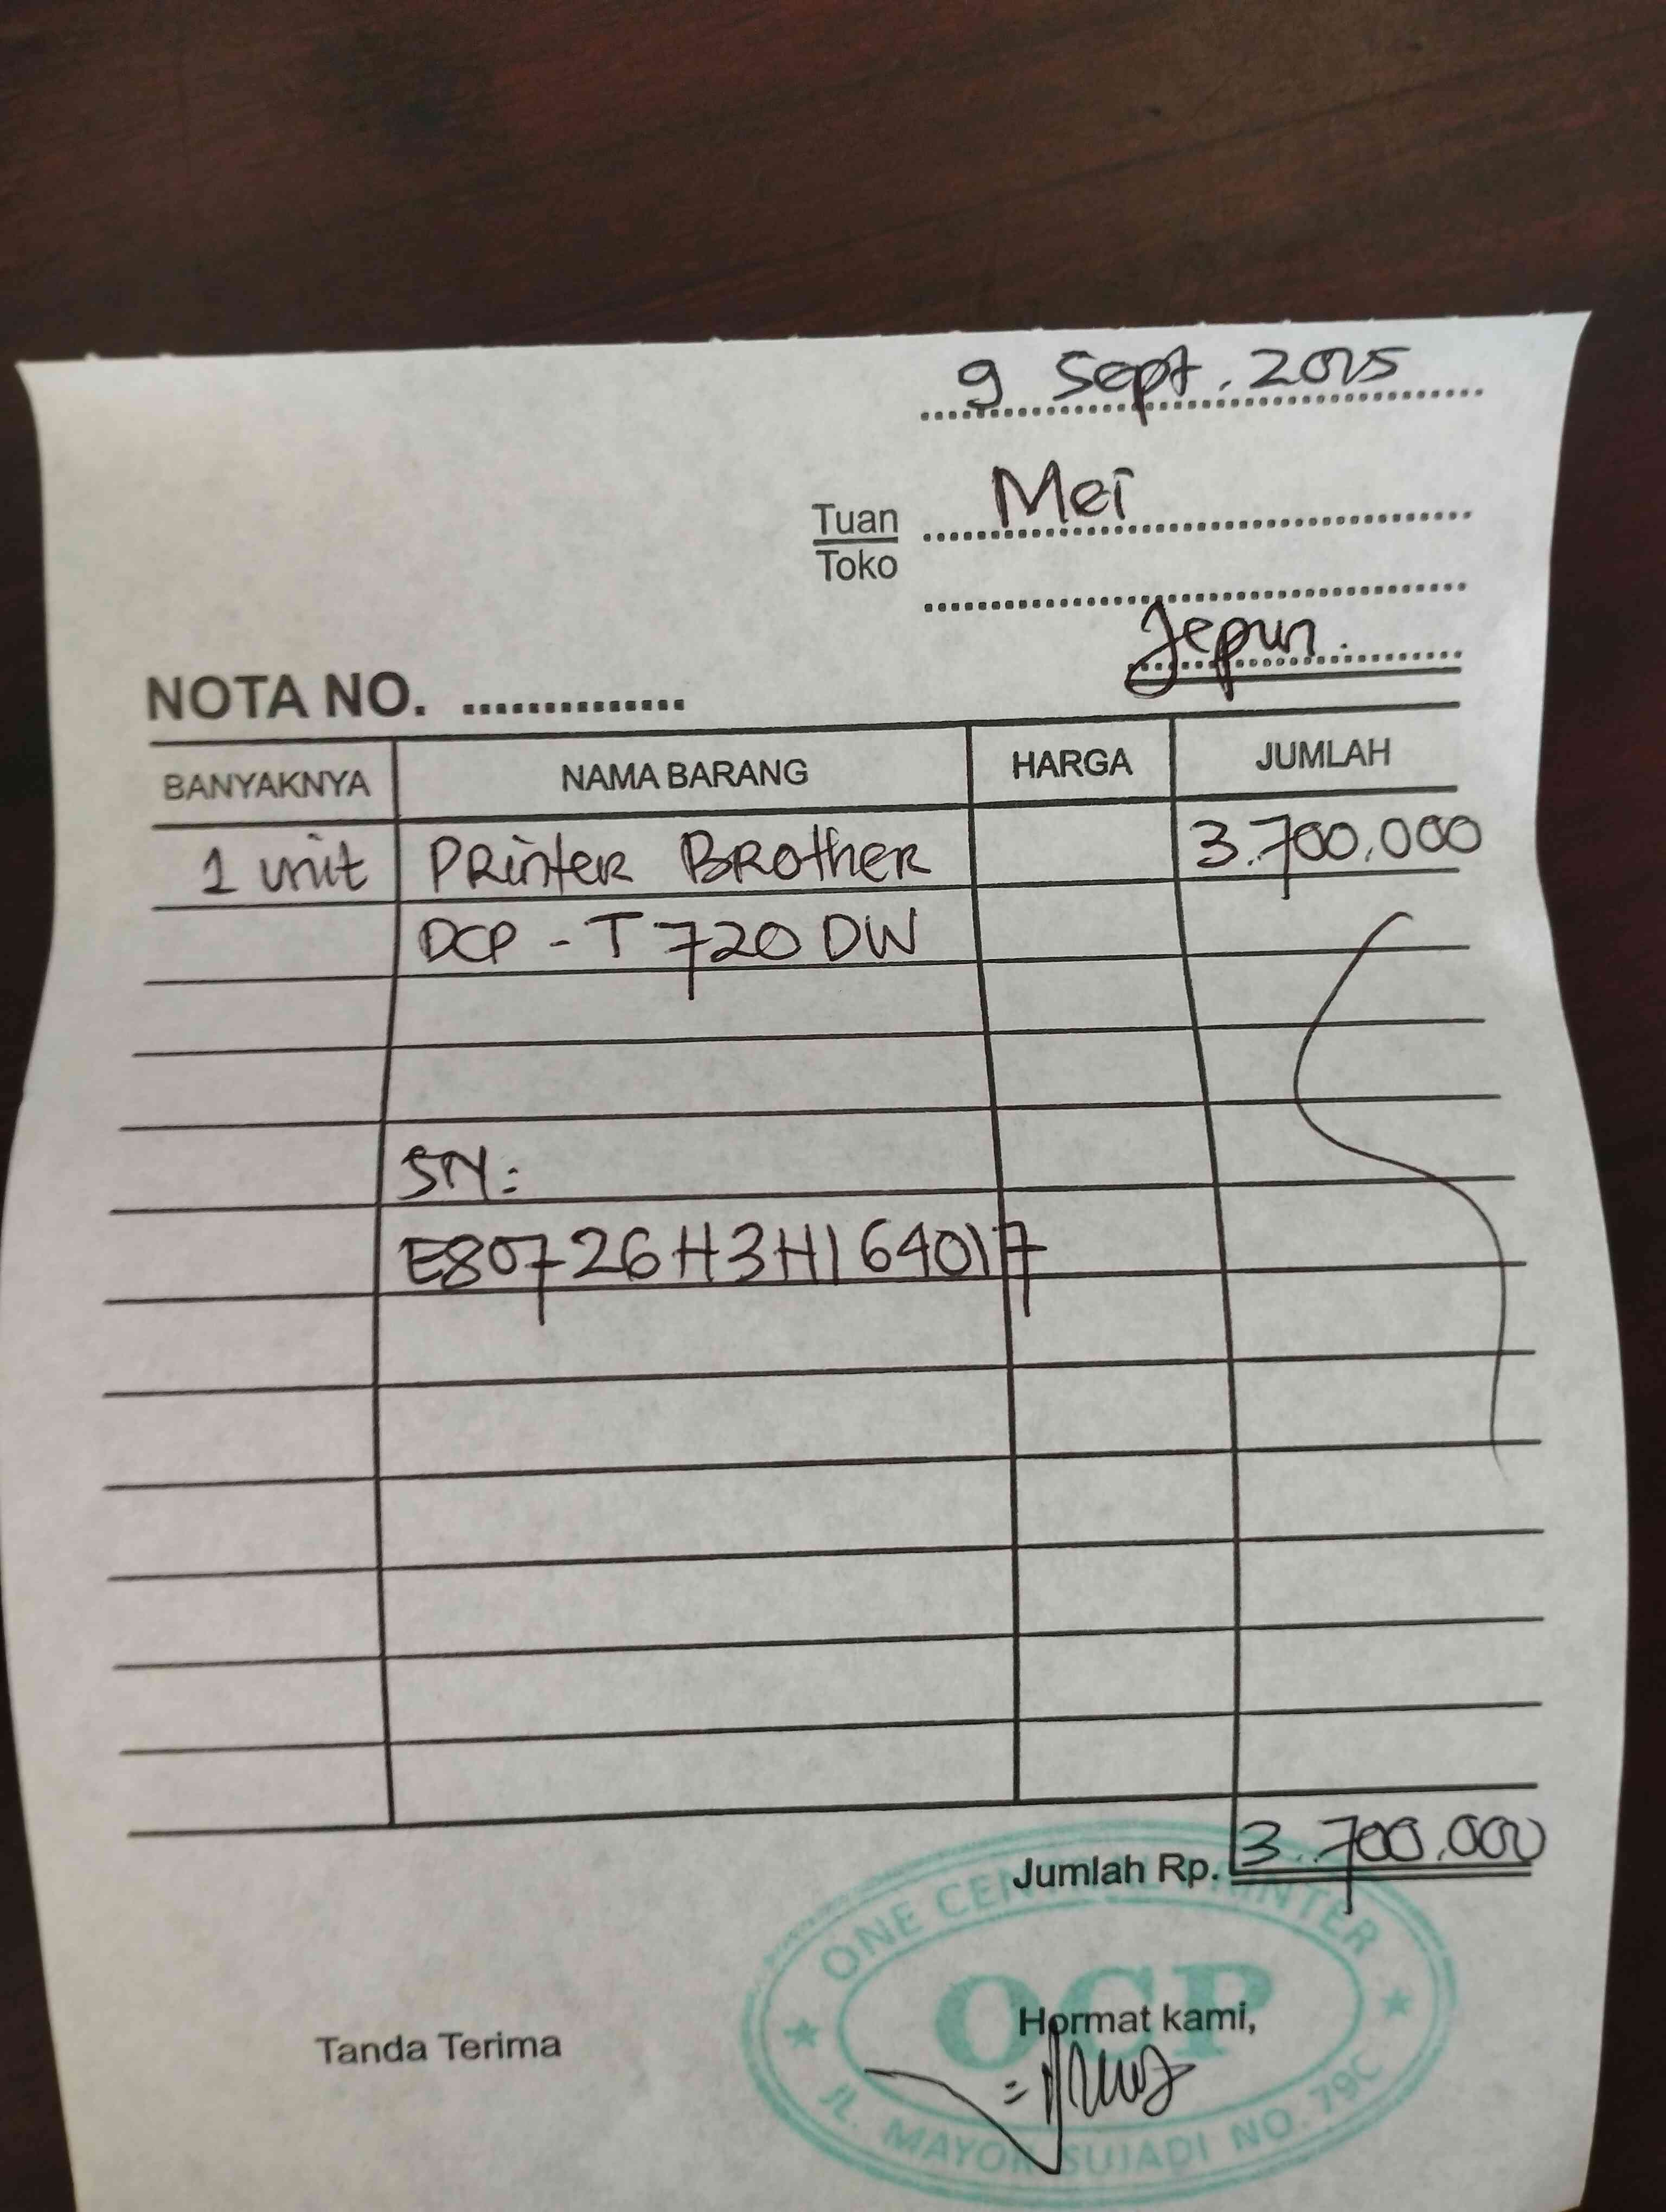 9 Sept. 2025
Tuan
Toko
Mei
Jepun.
NOTA NO. ..............
BANYAKNYA NAMA BARANG HARGA JUMLAH
1 unit Printer Brother 3.700.000
DCP - T720DW
SN:
E80726H3H164017
Jumlah Rp. 3.700.000
Tanda Terima
Hormat kami,
ONE CENTER PRINTER
OCP
JL. MAYOR SUJADI NO. 79C